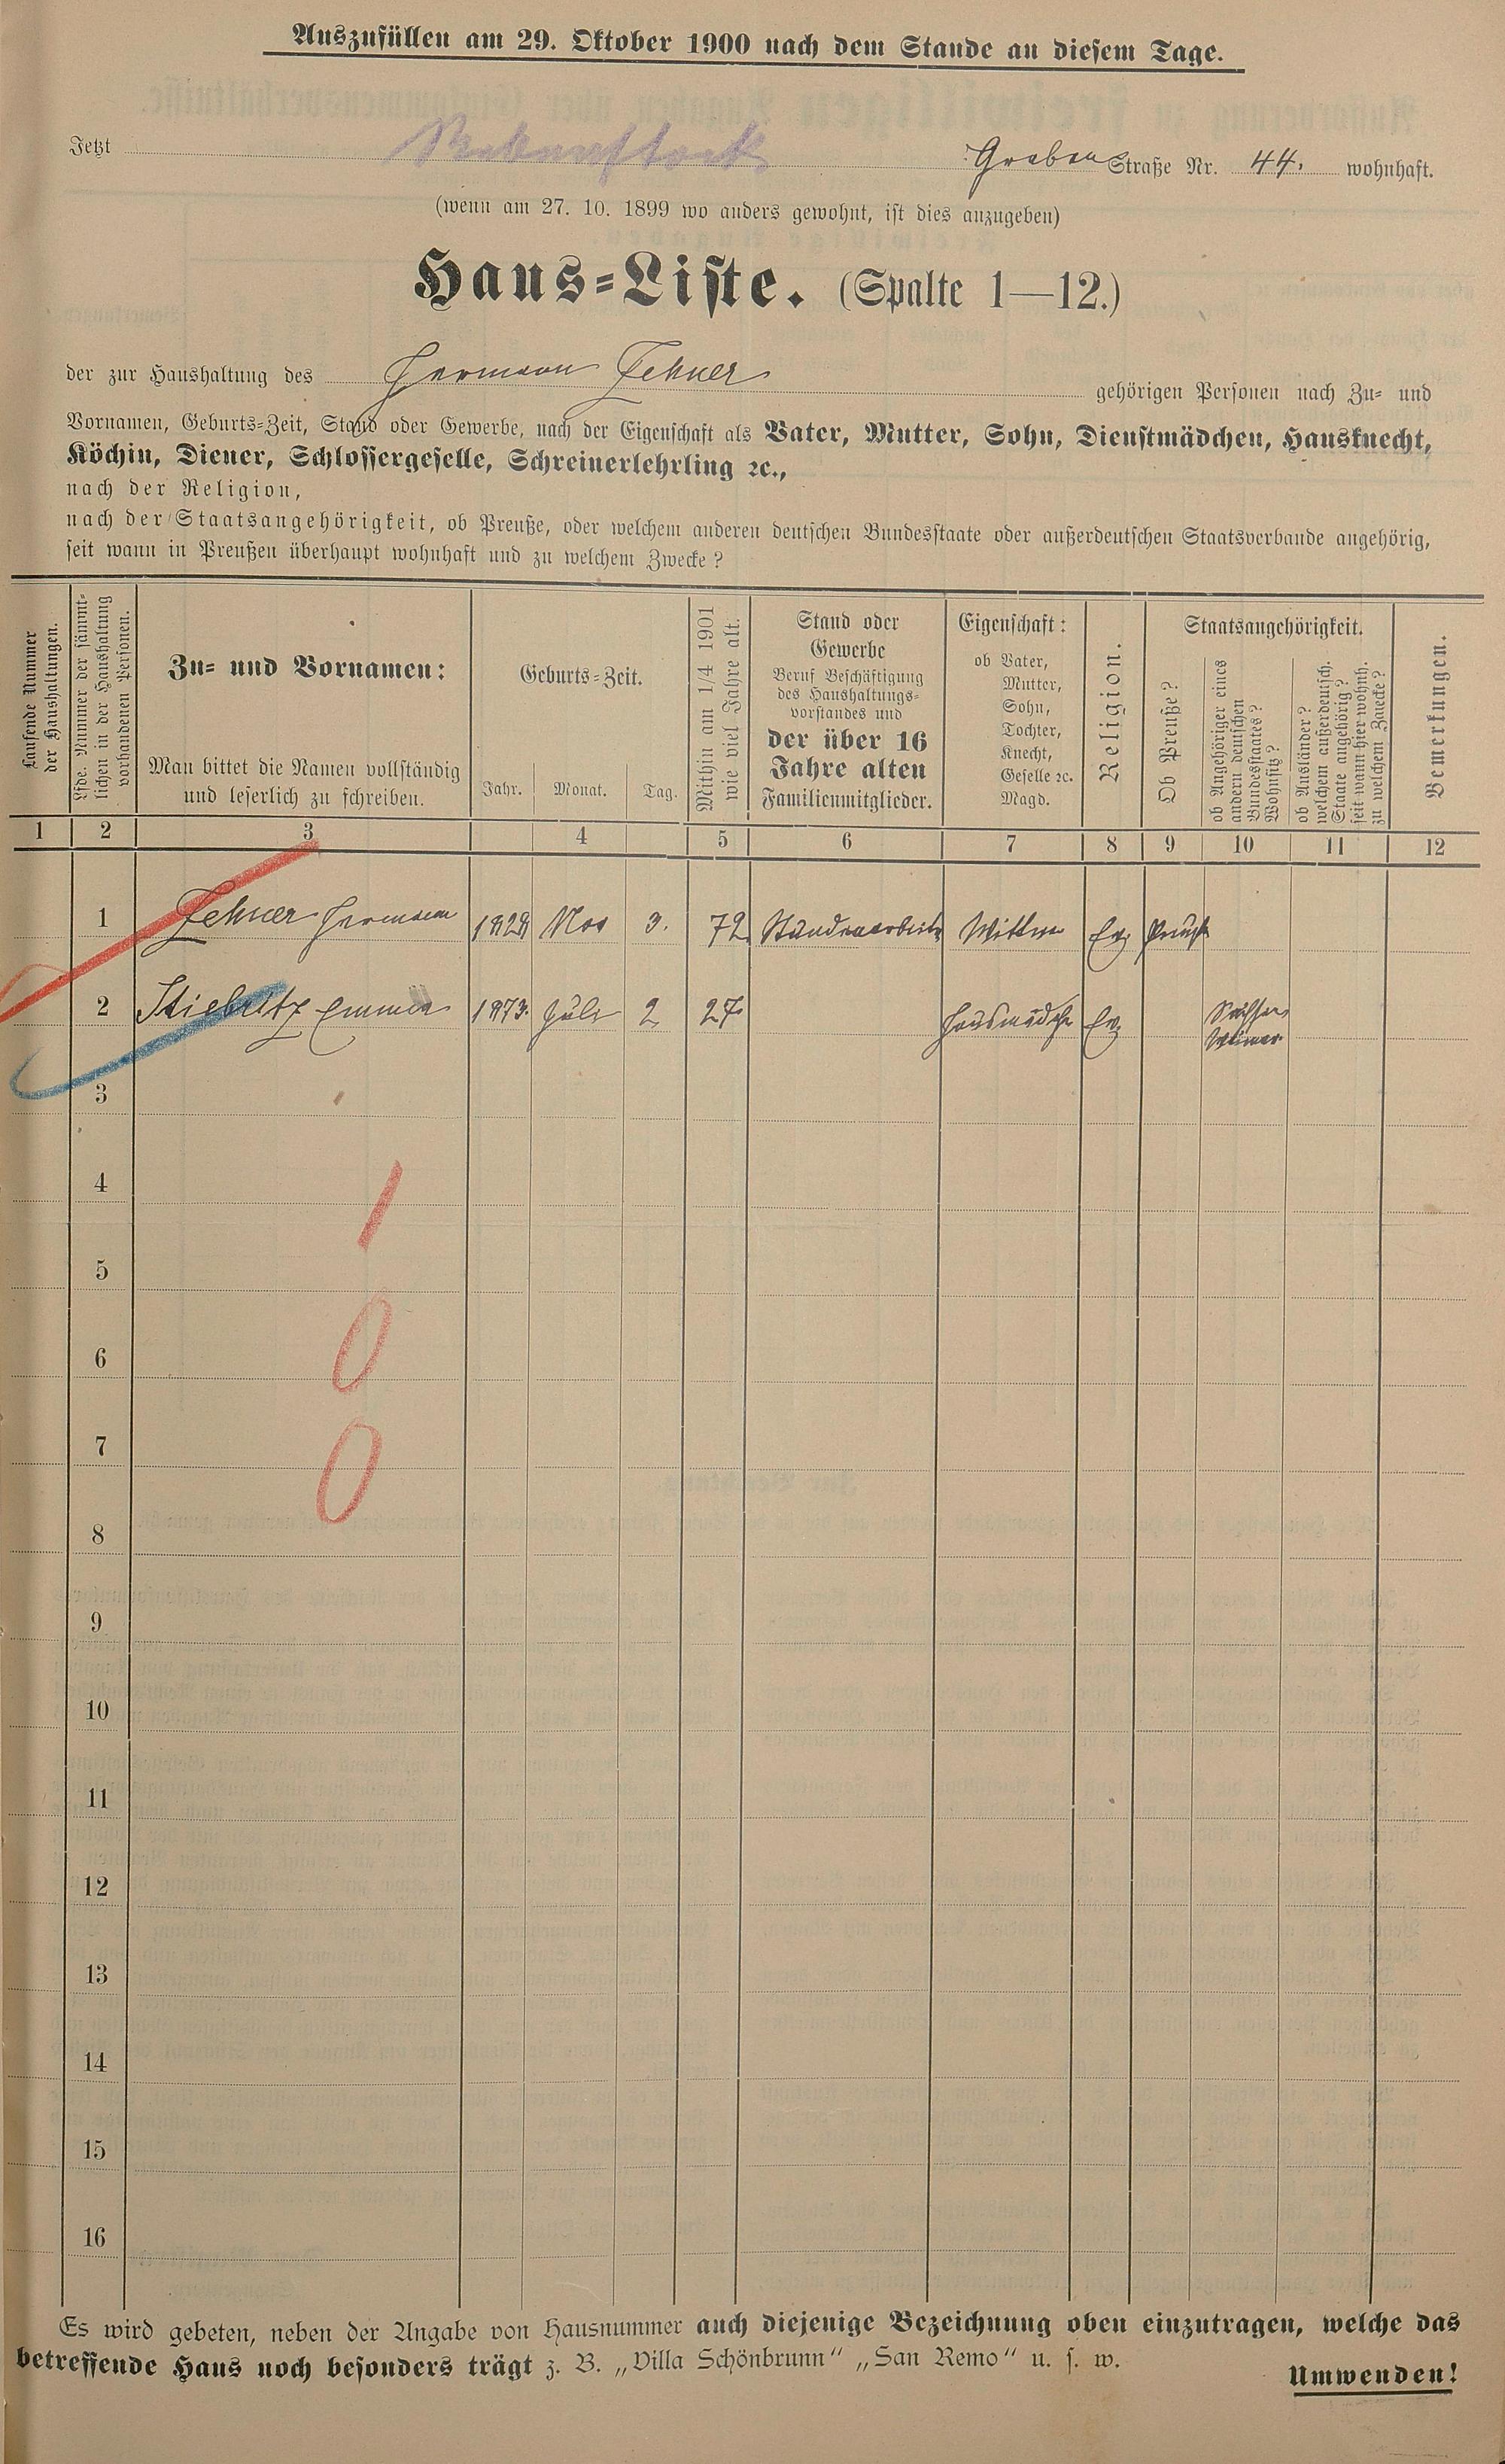 Auszufüllen am 29. Oktober 1900 nach dem Stande an diesem Tage.
Jetzt Graben Straße Nr. 44. wohnhaft.
(wenn am 27. 10. 1899 wo anders gewohnt, ist dies anzugeben)
Haus-Liste. (Spalte 1—12.)
der zur Haushaltung des Hermann Fehner gehörigen Personen nach Zu- und
Vornamen, Geburts-Zeit, Stand oder Gewerbe, nach der Eigenschaft als Vater, Mutter, Sohn, Dienstmädchen, Hausknecht,
Köchin, Diener, Schlossergeselle, Schreinerlehrling ꝛc.,
nach der Religion,
nach der Staatsangehörigkeit, ob Preuße, oder welchem anderen deutschen Bundesstaate oder außerdeutschen Staatsverbande angehörig,
seit wann in Preußen überhaupt wohnhaft und zu welchem Zwecke?
Laufende Nummer
der Haushaltungen.
Lfde. Nummer der sämmt-
lichen in der Haushaltung
vorhandenen Personen.
Zu- und Vornamen:
Man bittet die Namen vollständig
und leserlich zu schreiben.
Geburts-Zeit.
Jahr. Monat. Tag.
Mithin am 1/4 1901
wie viel Jahre alt.
Stand oder
Gewerbe
Beruf Beschäftigung
des Haushaltungs-
vorstandes und
der über 16
Jahre alten
Familienmitglieder.
Eigenschaft:
ob Vater,
Mutter,
Sohn,
Tochter,
Knecht,
Geselle ꝛc.
Magd.
Religion.
Staatsangehörigkeit.
Ob Preuße?
ob Angehöriger eines
andern deutschen
Bundesstaates?
Wohnsitz?
ob Ausländer?
welchem außerdeutsch.
Staate angehörig?
seit wann hier wohnh.
zu welchem Zwecke?
Bemerkungen.
1 2 3 4 5 6 7 8 9 10 11 12
1 Fehner Hermann 1828 Nov 3. 72 Wittwer Ev. Preuße
2 Stiebritz Emma 1873 Juli 2 27 Hausmädch Ev. Sachsen
Weimar
3
4
1
5
0
6
7
0
8
9
10
11
12
13
14
15
16
Es wird gebeten, neben der Angabe von Hausnummer auch diejenige Bezeichnung oben einzutragen, welche das
betreffende Haus noch besonders trägt z. B. „Villa Schönbrunn“ „San Remo“ u. s. w.
Umwenden!